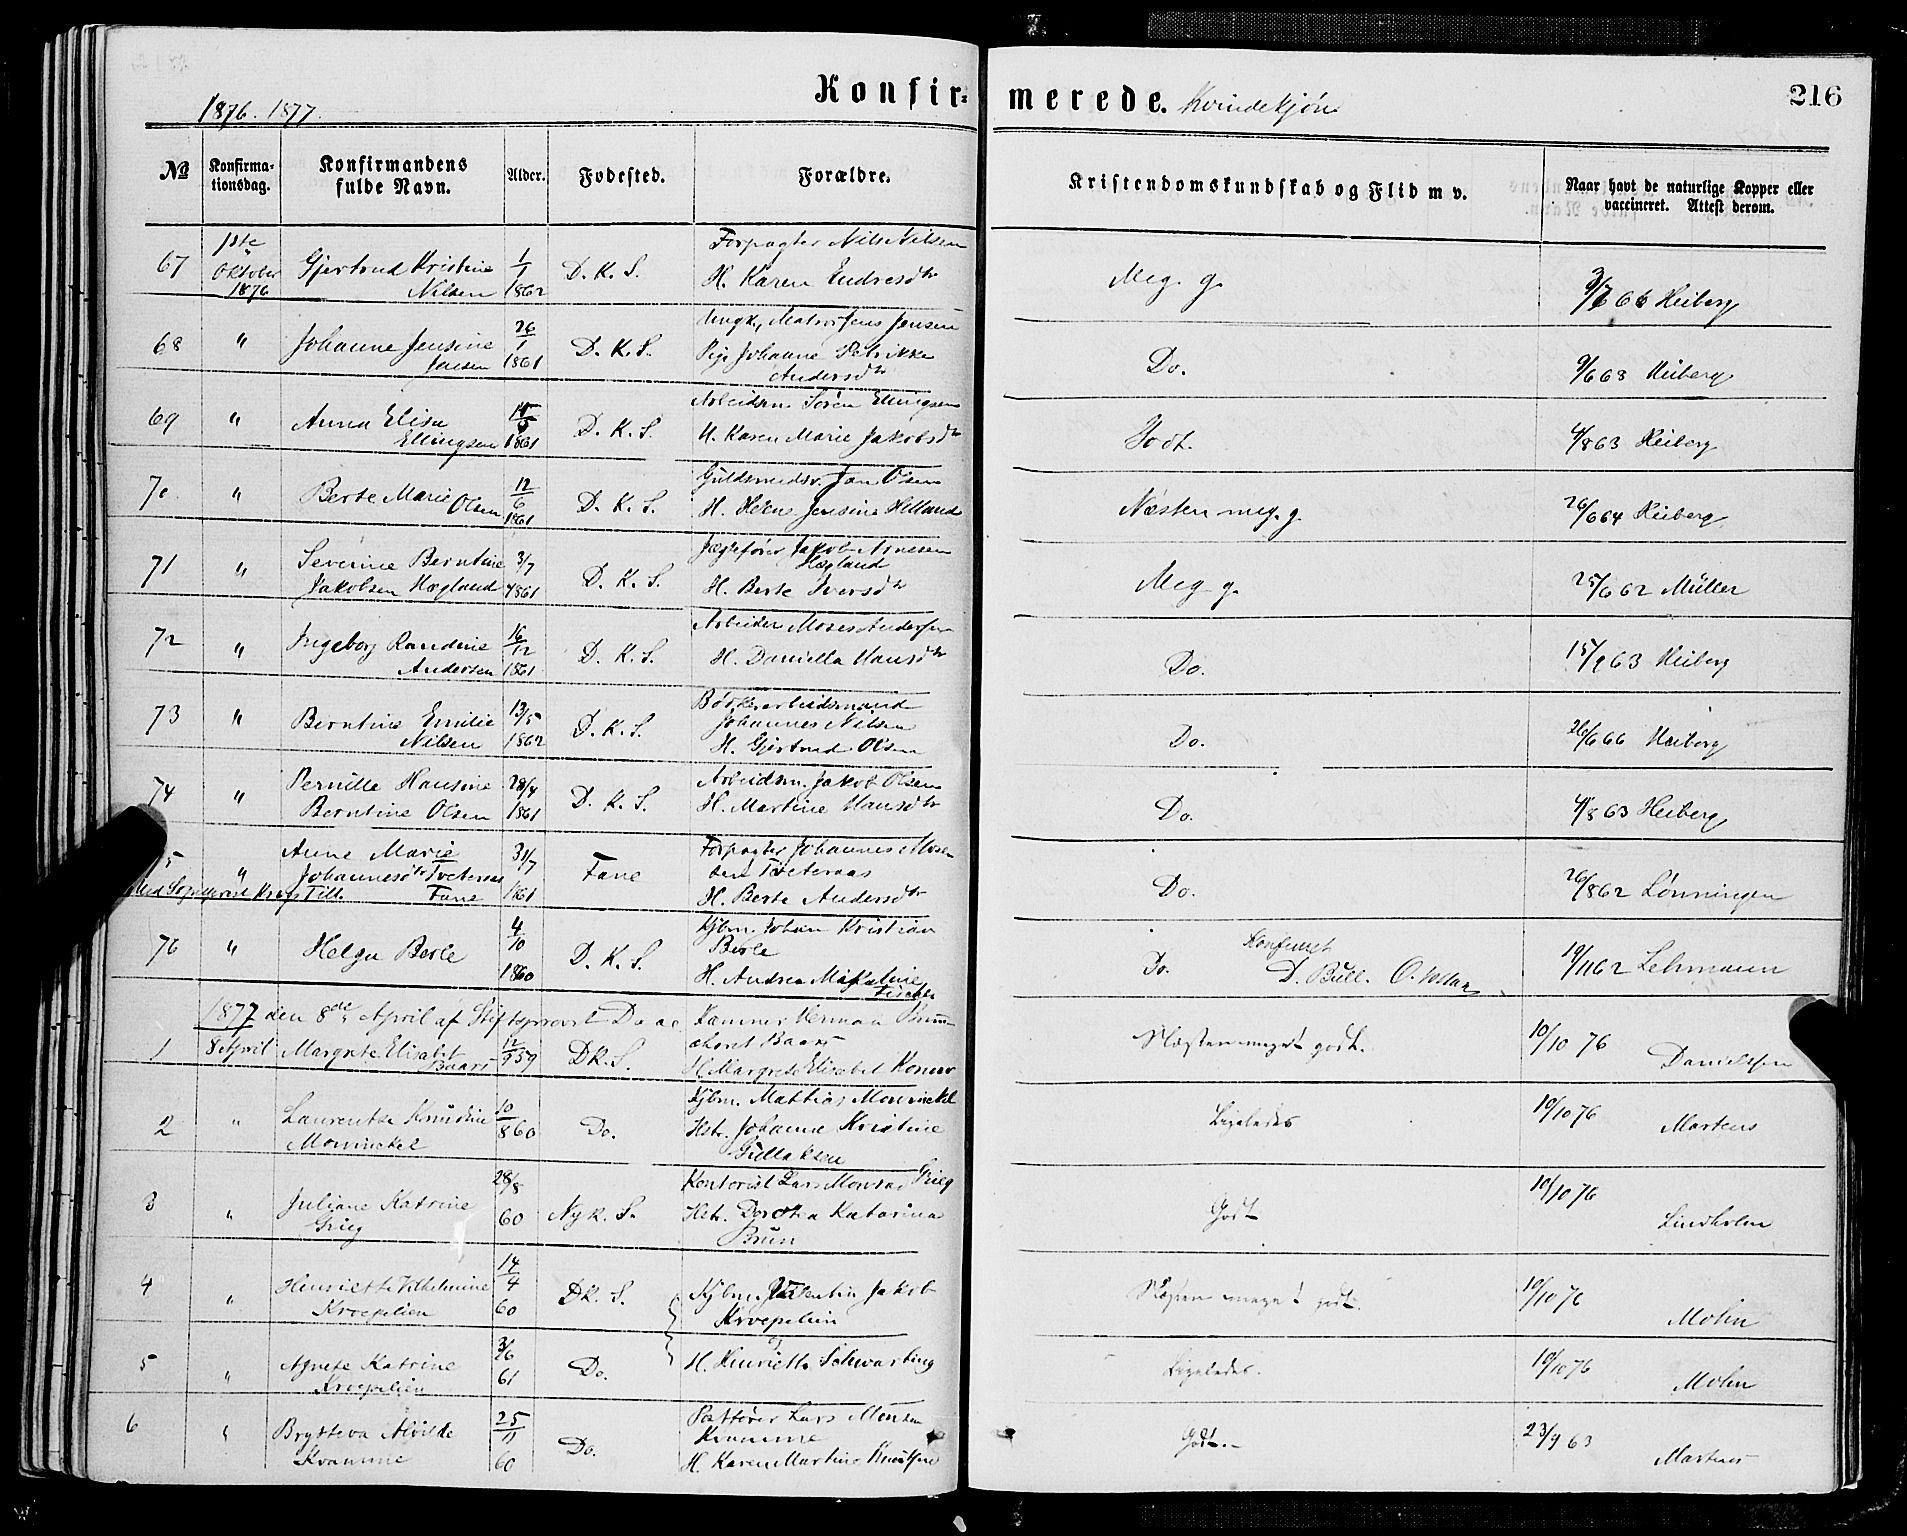 1876. 1877.
Konfir= merede. Kvindekjøn
216
No
Konfirma-
tionsdag.
Konfirmandens
fulde Navn.
Alder.
Fødested.
Forældre.
Kristendomskundskab og Flid m v.
Naar havt de naturlige Kopper eller
vaccineret. Attest derom.
1ste Forpagter Nils Nilsen
67 Oktober Gjertrud Kristine 1/1 D. K. S. H. Karen Endresdtr Meg. g. Heiberg
1876 Nilsen 1862
68 " Johanne Jensine 26/1 D. K. S. Ungk, Matros Jens Jensen Do. 9/6 63 Heiberg
Jensen 1861 Pige Johanne Petrikke
Andersdtr
69 " Anna Elisa D. K. S. Arbeidsm. Søren Ellingsen Godt. 4/8 63 Heiberg
Ellingsen 1861 H. Karen Marie Jakobsdtr
70 " Berte Marie 12/6 D. K. S. Guldsmedsv. Jan Olsen Næsten meg. g. 26/6 64 Heiberg
Olsen 1861 H. Helene Jensine Helland
71 " Severine Berntine 3/7 D. K. S. Jægtefører Jakob Meg. g. 25/6 62 Müller
Jakobsen Hægland 1861 Hægland
H. Berte Iversdtr
72 " Ingeborg Randine 16/12 D. K. S. Arbeider Moses Andersen Do. 15/9 63 Heiberg
Andersen 1861 H. Daniella Hansdtr
73 " Berntine Emilie 13/5 D. K. S. arbeidsmand Do. 26/6 66 Heiberg
Nilsen 1862 Johannes Nilsen
H. Gjertrud Olsen
74 " Pernille Hansine 28/4 D. K. S. Arbeidsm. Jakob Olsen Do. 4/8 63 Heiberg
Berntine Olsen 1861 H. Martine Hansdtr
5 " Anne Marie 31/7 Fane Forpagter Johannes Mosesen Do. 26/8 62 Lønningen
Johannesdtr Tveteraas 1861 Tveteraas
Till. Fane H. Berte Andersdtr
76 " Helga Berle 4/10 D. K. S. Kjbm. Johan Kristian Do. Konfirmet 19/11 62 Lehmann
1860 Berle D. Bull.
H. Andrea Magdaline
Fischer
1877 den 8de April af Stiftsprovst D. a. c.
1 8 April Margrete Elisabet 12/9 59 DK. S. Kæmner Herman Næsten meget godt. 10/10 76 Danielssen
Baars Baars
H. Margrete Elisabet Konow
2 " Laurentze Knudine 10/8 60 Do. Kjbm. Mattias Mowinckel Ligeledes 10/10 76 Martens
Mowinckel Hstr. Johanne Kristine
Gullaksen
3 " Juliane Katrine 28/8 60 Nyk. S. Kontorist Lars Monrad Grieg Godt 10/10 76 Lindholm
Grieg Hstr. Dorotea Katarina
Brun
4 " Henriette Vilhelmine 14/4 60 DK. S. Kjbm. Jakob Næsten meget godt. 10/10 76 Mohn
Kroepelien Kroepelien
5 " Agnete Katrine 3/6 61 Do. og H. Henriette Schwarting Ligeledes. 10/10 76 Mohn
Kroepelien
6 " Brytteva Alvilde 25/11 60 Do. Lars Monsen Godt.- 23/9 63 Martens
Kvamme Kvamme
H. Karen Martine Knutsen